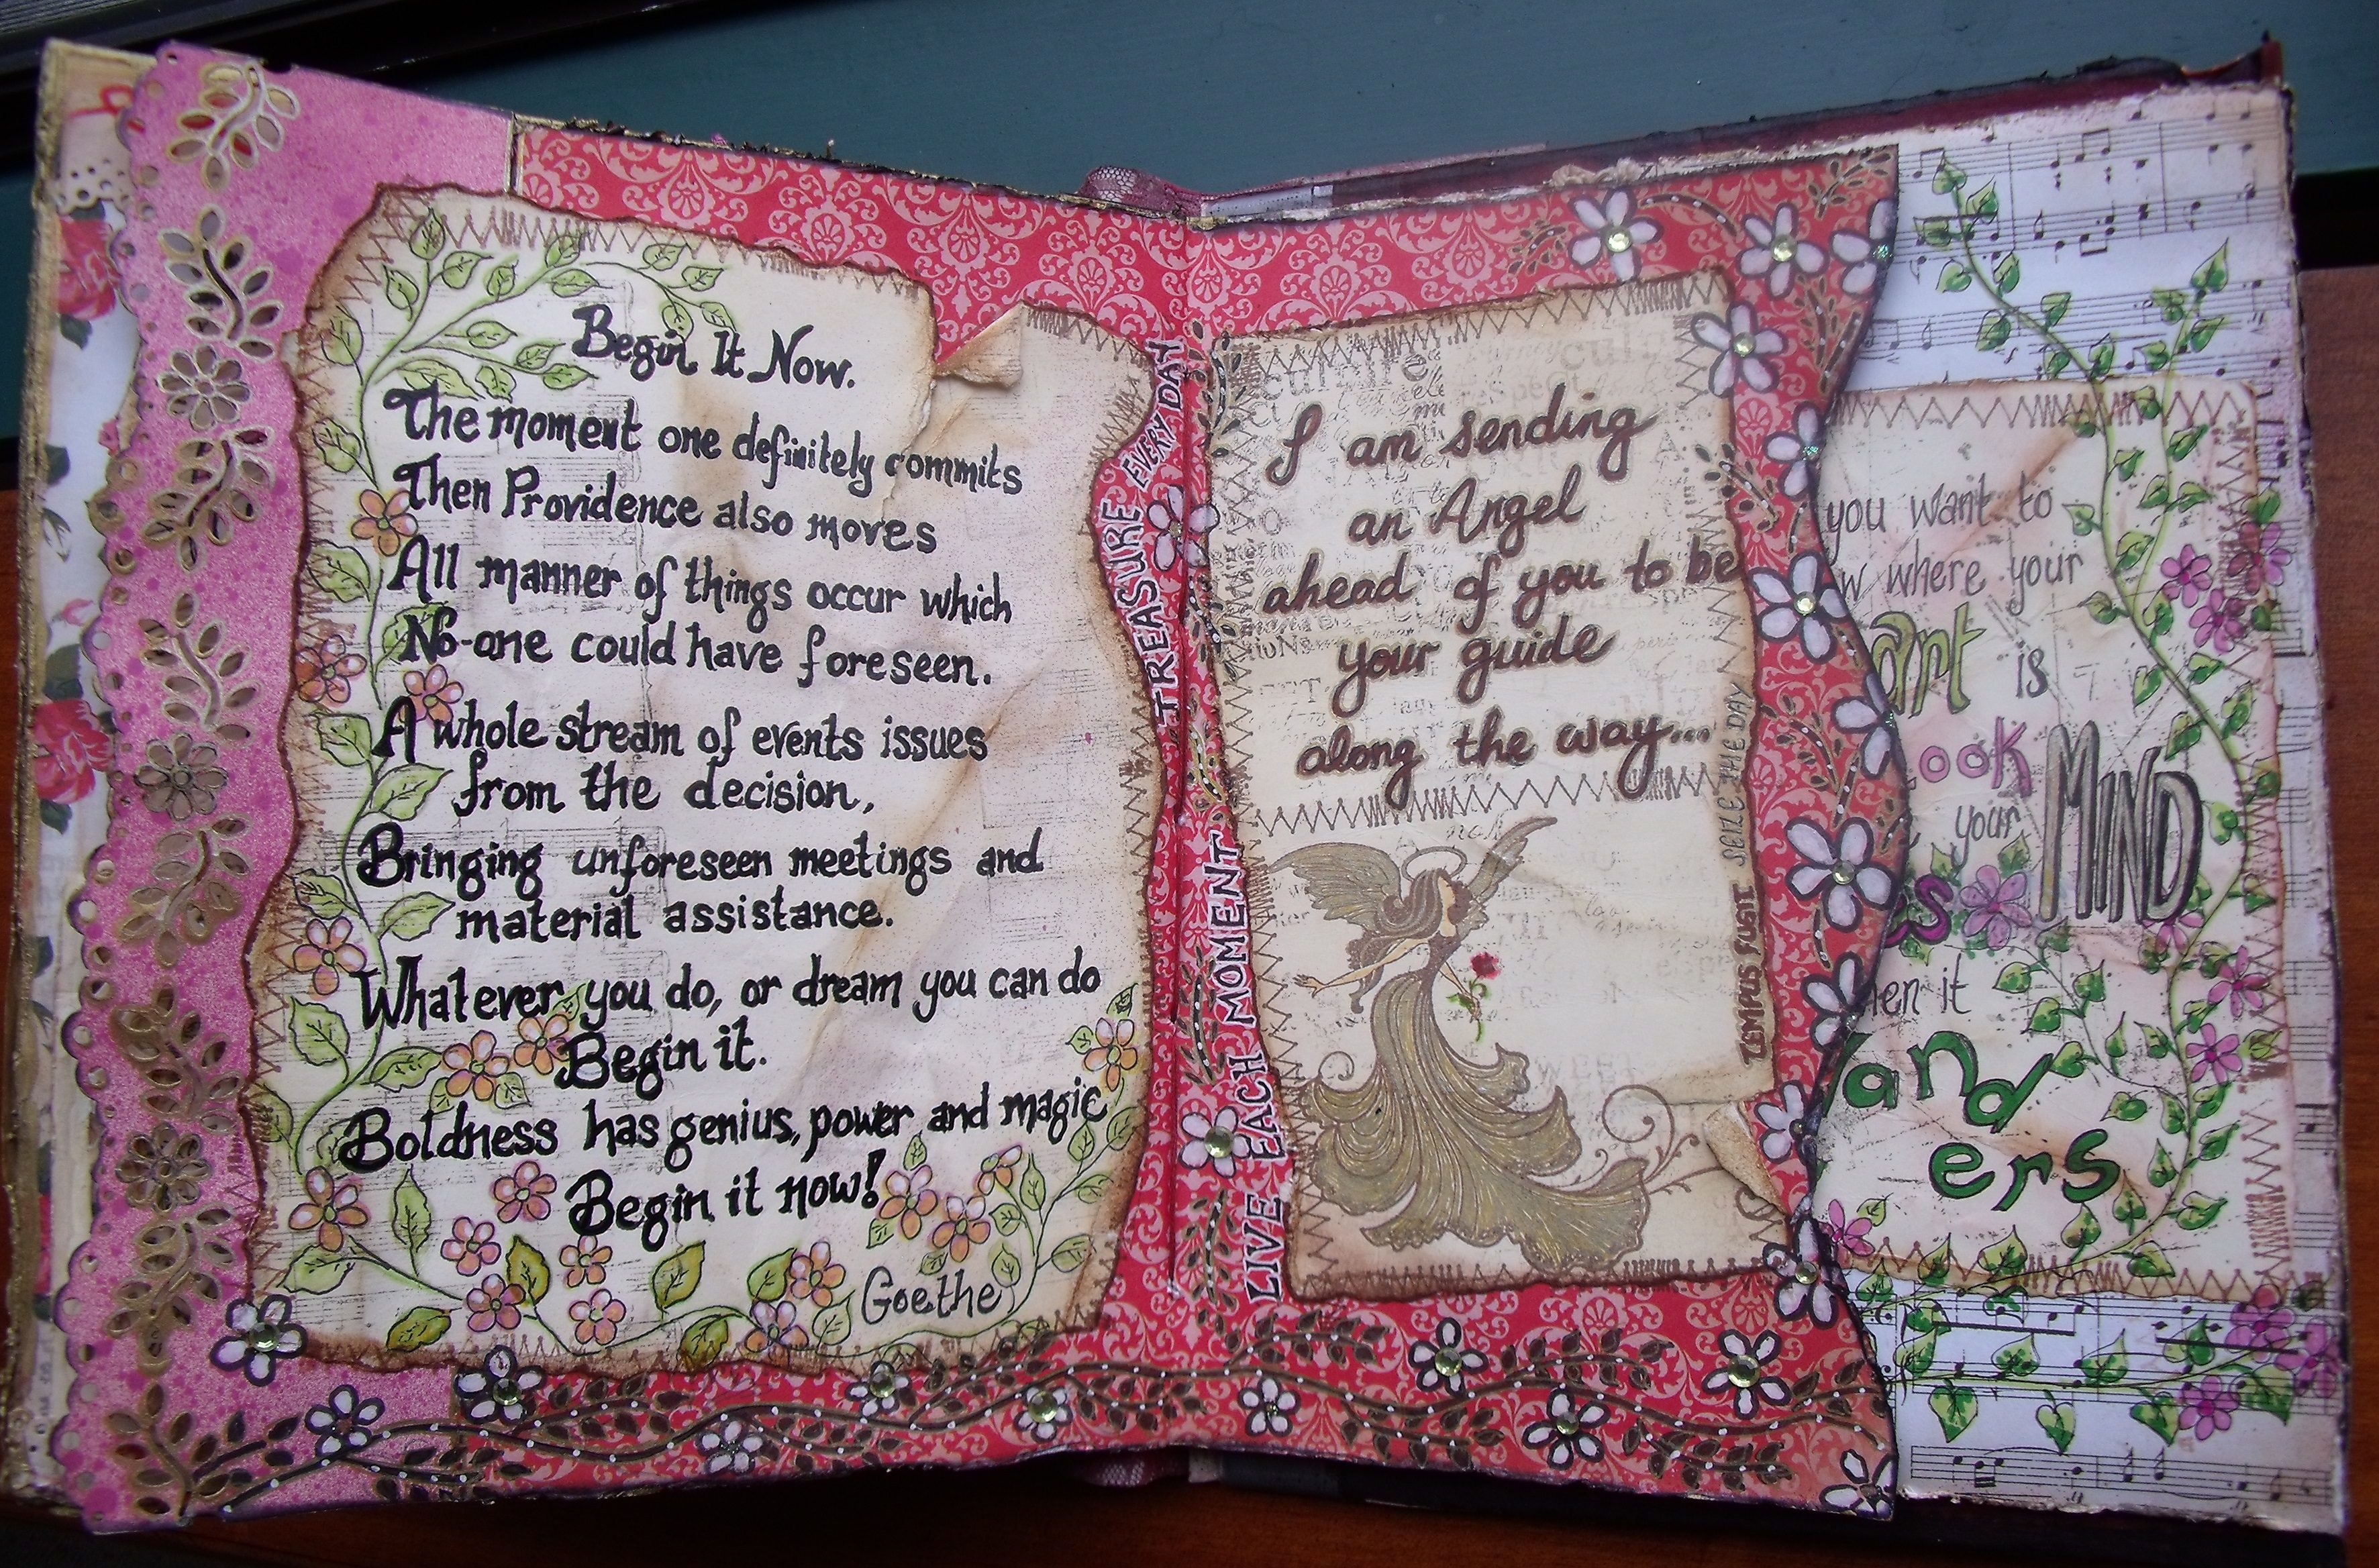 Begin It Now.
The moment one definitely commits
Then Providence also moves
All manner of things occur which
No-one could have foreseen.
A whole stream of events issues
from the decision,
Bringing unforeseen meetings and
material assistance.
Whatever you do, or dream you can do
Begin it.
Boldness has genius, power and magic
Begin it now!
Goethe
TREASURE EVERY DAY
LIVE EACH MOMENT
I am sending
an Angel
ahead of you to be
your guide
along the way...
TEMPUS FUGIT SEIZE THE DAY
you want to
w where your
art is
ook
your MIND
es
hen it
and
ers